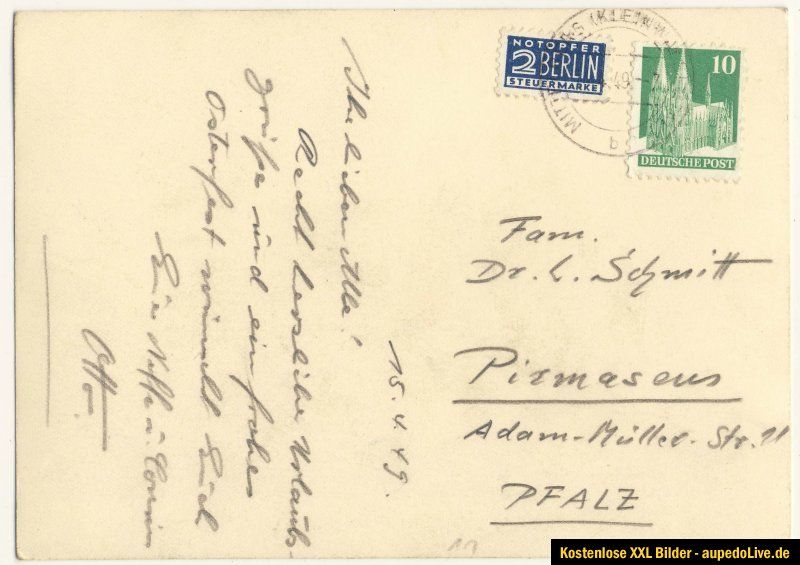 NOTOPFER
2 BERLIN
STEUERMARKE
10
DEUTSCHE POST
b
15.4.49.
Ihr lieben Alle!
Recht herzliche Urlaubs-
grüße und ein frohes
Osterfest wünscht Euch
Euer Neffe u. Cousin
Otto.
Fam.
Dr. L. Schmitt
Pirmasens
Adam-Müller-Str. 21
PFALZ
Kostenlose XXL Bilder - aupedoLive.de